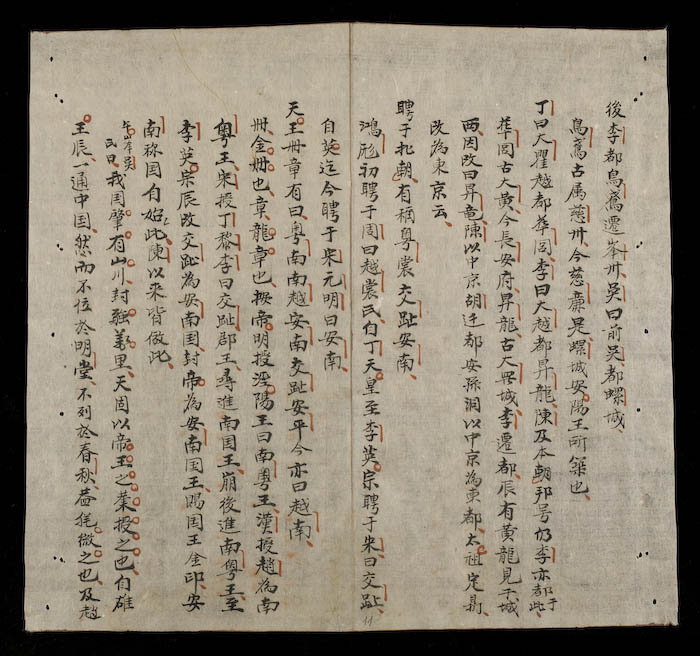 後李都鳥鳶遷峯州吳曰前吳都螺城
鳥鳶古属慈州今慈廉是螺城安陽王所築也
丁曰大瞿越都華閭李曰大越都昇龍陳及本朝邦号仍李亦都于此
華閭古大黄今長安府昇龍古大羅城李遷都辰有黄龍見于城
西因改曰昇竜陳以中京胡迁都安孫洞以中京為東都太祖定鼎
改為東京云
聘于北朝有稱粤裳交趾安南
鴻厖初聘于周曰越裳氏自丁天皇至李英宗聘于宋曰交趾
自英迄今聘于宋元明曰安南
天王册章有曰粤南南越安南交趾安平今亦曰越南
册金册也章龍章也按帝明授涇陽王曰南粤王漢授趙為南
粤王宋授丁黎李曰交趾郡王尋進南国王崩後進南粤王至
李英宗辰改交趾為安南国封帝為安南国王賜国王金印安
南称国自始此陳以来皆倣此
午峯吳氏曰我国肇有山川封疆萬里天固以帝王之業授之也自雄
王辰一通中国然而不位於明堂不列於春秋葢侊微之也及趙